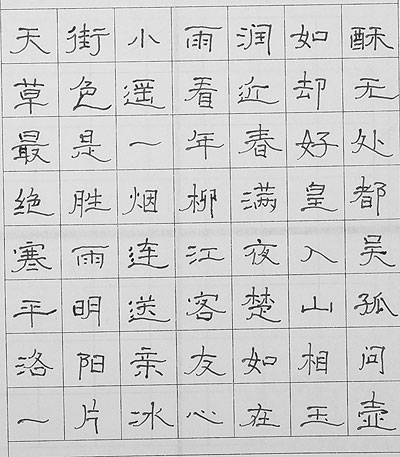 天街小雨润如酥
草色遥看近却无
最是一年春好处
绝胜烟柳满皇都
寒雨连江夜入吴
平明送客楚山孤
洛阳亲友如相问
一片冰心在玉壶